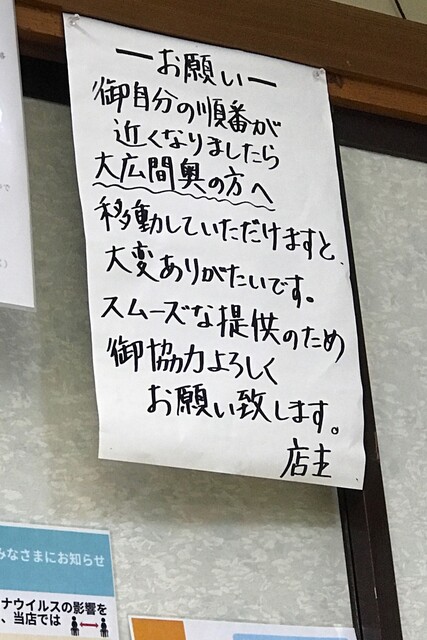 ーお願いー
御自分の順番が
近くなりましたら
大広間奥の方へ
移動していただけますと、
大変ありがたいです。
スムーズな提供のため
御協力よろしく
お願い致します。
店主
みなさまにお知らせ
ナウイルスの影響を
、当店では